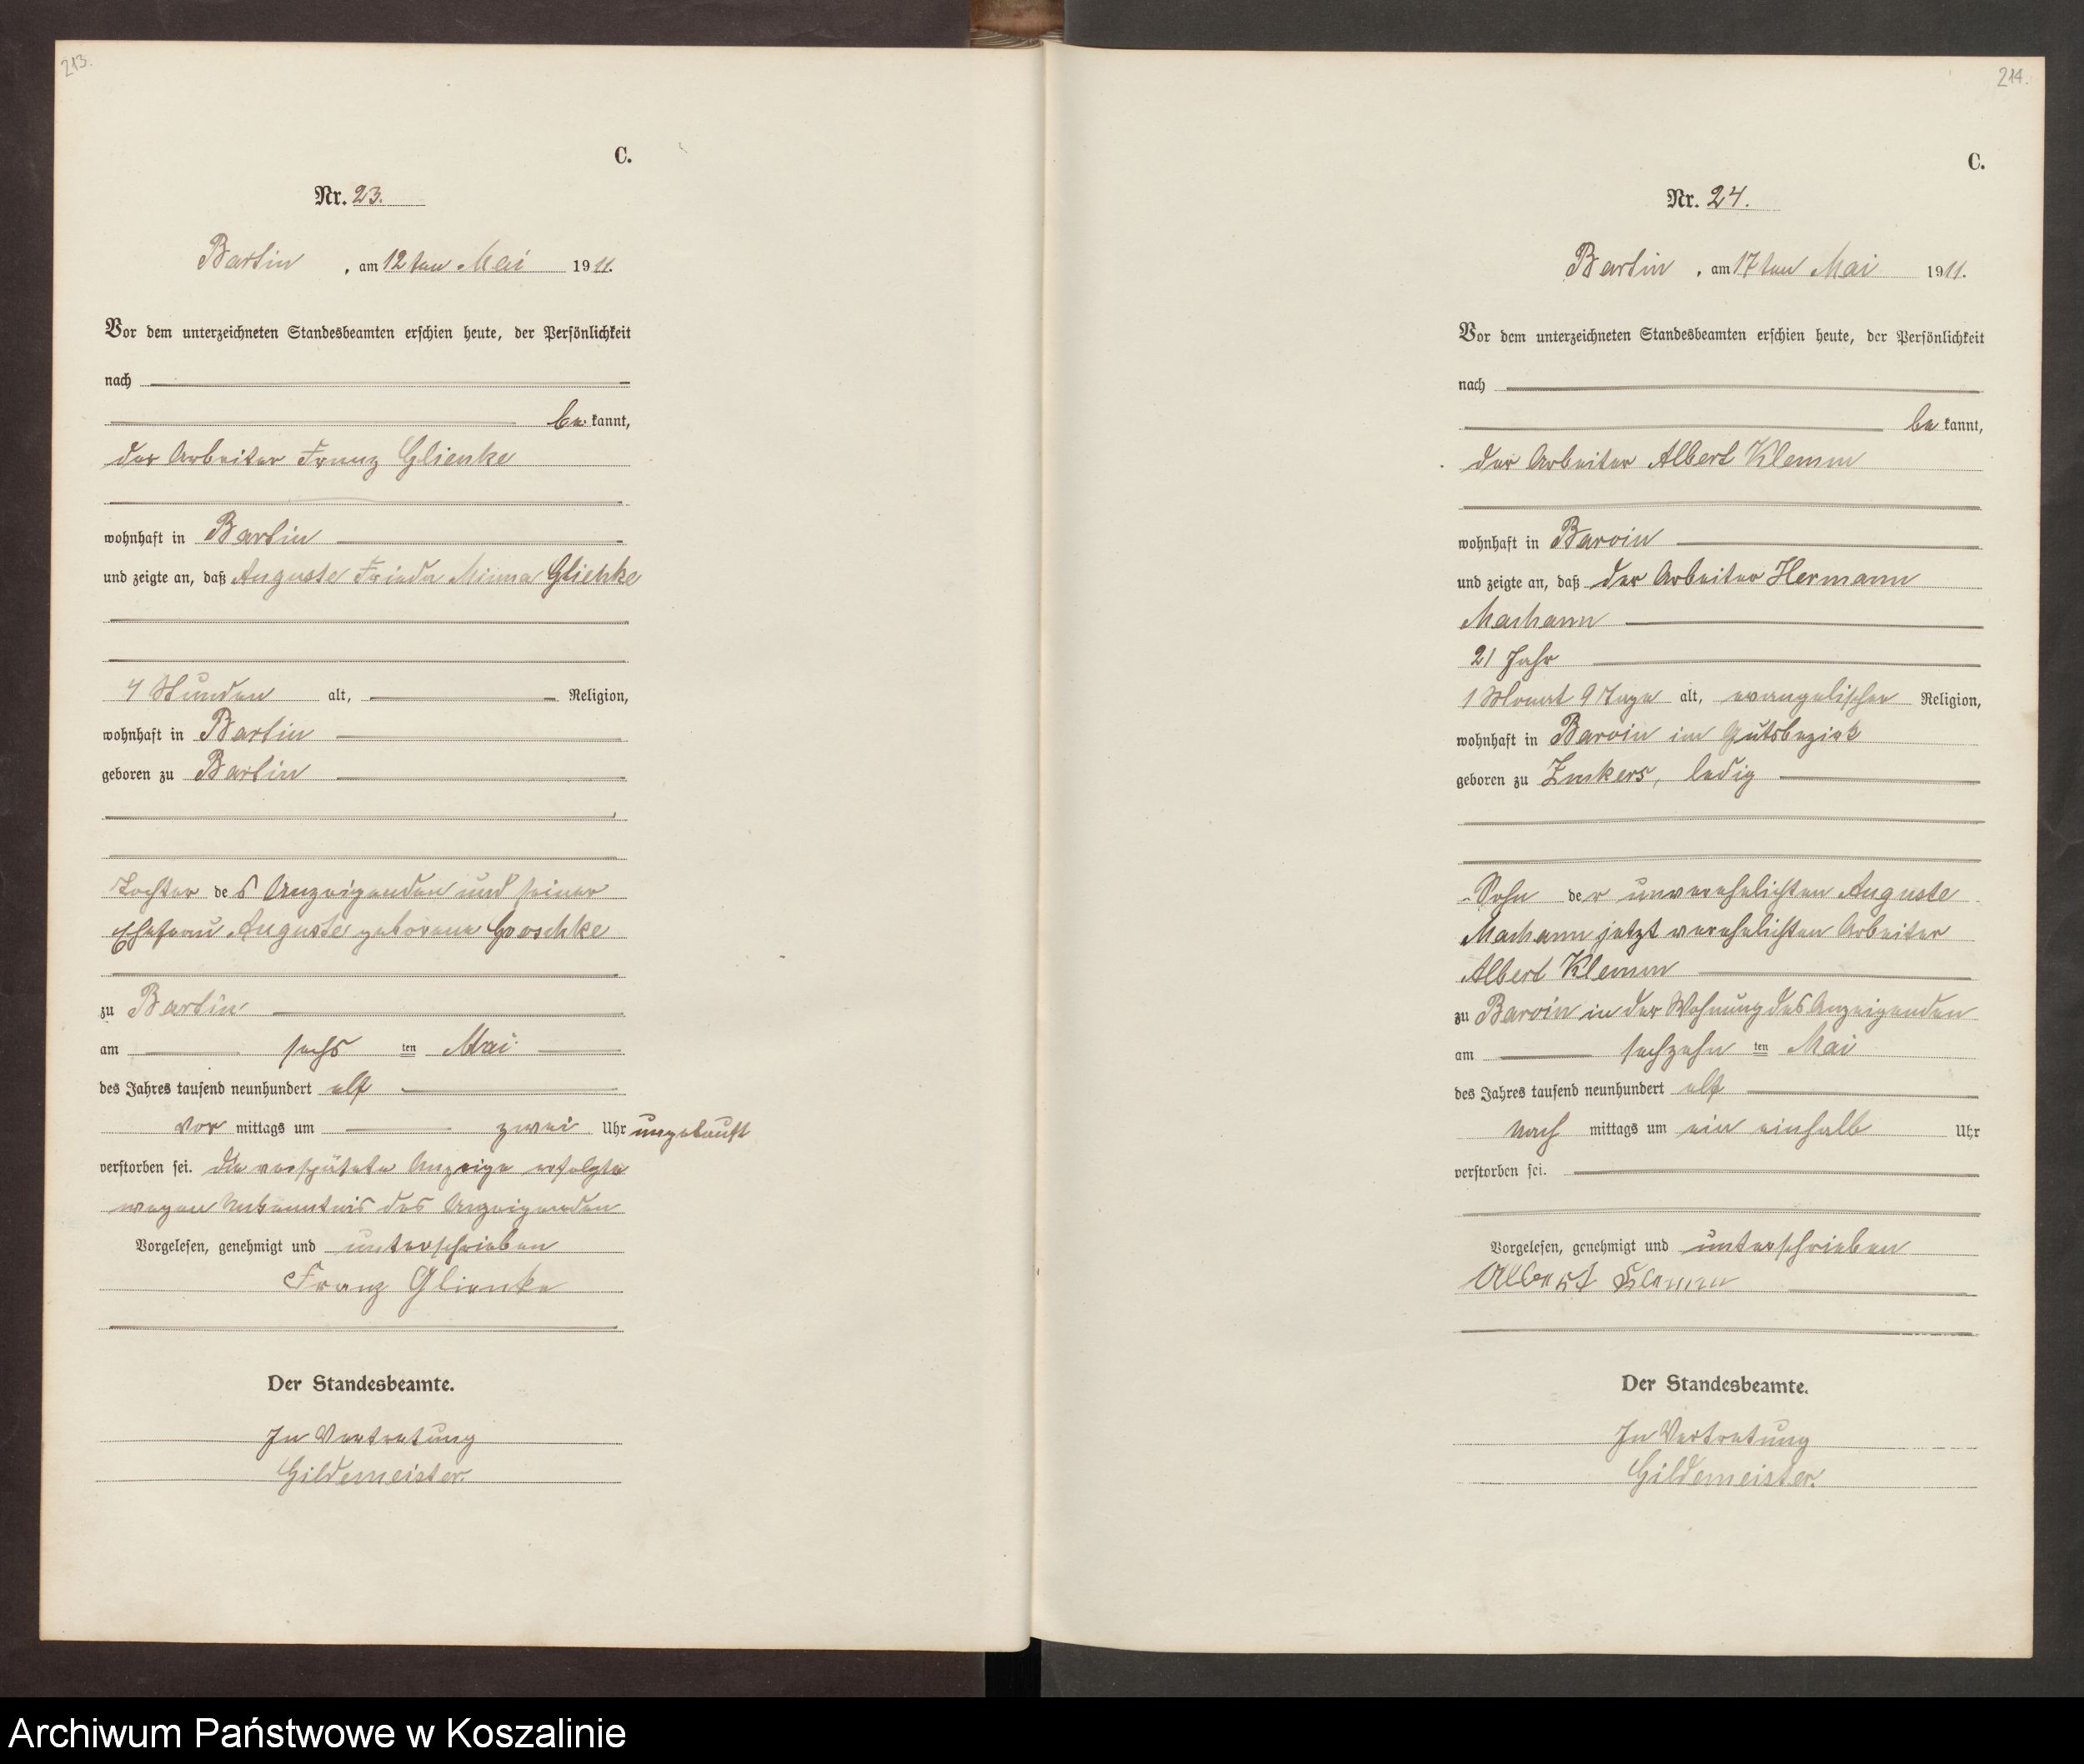 213.
C.
Nr. 23.
Bartin, am 12ten Mai 1911.
Vor dem unterzeichneten Standesbeamten erschien heute, der Persönlichkeit
nach
be kannt,
der Arbeiter Franz Glienke
wohnhaft in Bartin
und zeigte an, daß Auguste Frieda Minna Glienke
4 Stunden alt, Religion,
wohnhaft in Bartin
geboren zu Bartin
Tochter des Anzeigenden und seiner
Ehefrau Auguste geborene Groschke
zu Bartin
am sechs ten Mai
des Jahres tausend neunhundert elf
vor mittags um zwei Uhr ungetauft
verstorben sei. Die verspätete Anzeige erfolgte
wegen Unkenntnis des Anzeigenden
Vorgelesen, genehmigt und unterschrieben
Franz Glienke
Der Standesbeamte.
In Vertretung
Gildemeister.
214.
C.
Nr. 24.
Bartin, am 17ten Mai 1911.
Vor dem unterzeichneten Standesbeamten erschien heute, der Persönlichkeit
nach
be kannt,
der Arbeiter Albert Klemm
wohnhaft in Barvin
und zeigte an, daß der Arbeiter Hermann
Machann
21 Jahr
1 Monat 9 Tage alt, evangelischer Religion,
wohnhaft in Barvin im Gutsbezirk
geboren zu Zuckers, ledig
Sohn der unverehelichten Auguste
Machann jetzt verehelichten Arbeiter
Albert Klemm
zu Barvin in der Wohnung des Anzeigenden
am sechzehn ten Mai
des Jahres tausend neunhundert elf
nach mittags um ein einhalb Uhr
verstorben sei.
Vorgelesen, genehmigt und unterschrieben
Albert Klemm
Der Standesbeamte.
In Vertretung
Gildemeister.
Archiwum Państwowe w Koszalinie